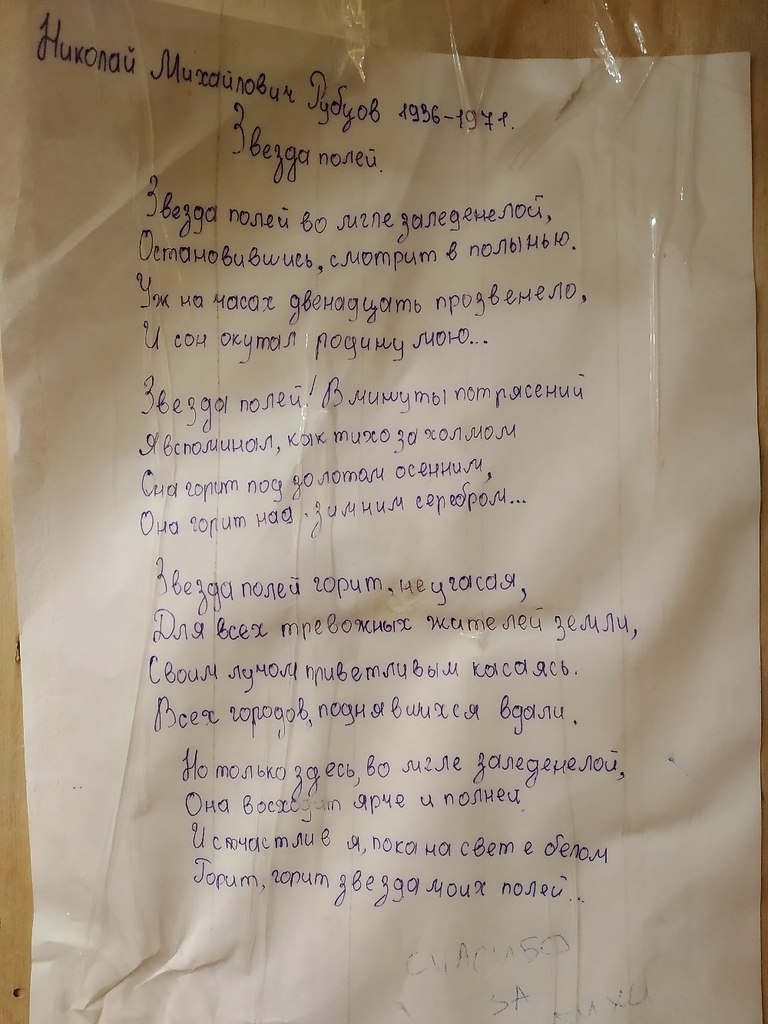 Николай Михайлович Рубцов 1936-1971.
Звезда полей.
Звезда полей во мгле заледенелой,
Остановившись, смотрит в полынью.
Уж на часах двенадцать прозвенело,
И сон окутал родину мою...
Звезда полей! В минуты потрясений
Я вспоминал, как тихо за холмом
Она горит под золотом осенним,
Она горит над зимним серебром...
Звезда полей горит, не угасая,
Для всех тревожных жителей земли,
Своим лучом приветливым касаясь.
Всех городов, поднявшихся вдали.
Но только здесь, во мгле заледенелой,
Она восходит ярче и полней
И счастлив я, пока на свете белом
Горит, горит звезда моих полей...
СПАСИБО
ЗА